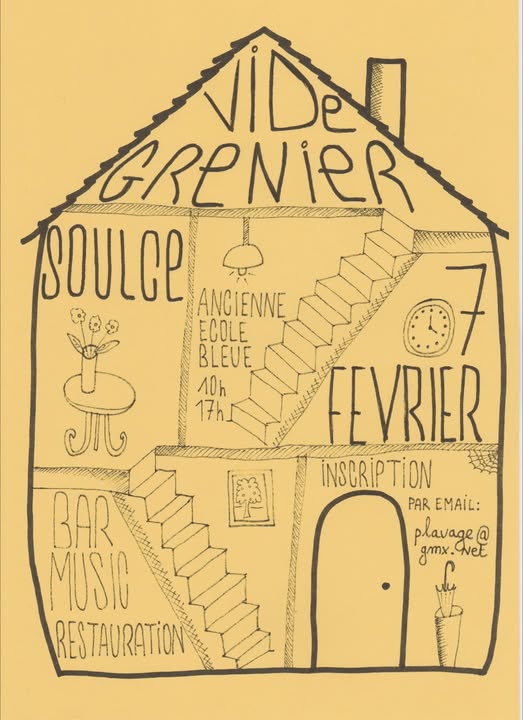 ViDe
GReNieR
SOULCe
ANCIENNE
ECOLE
BLEUE
10h
17h
7
FEVRIER
iNSCRIPTION
PAR EMAIL:
plavage@
gmx.net
BAR
MUSIC
RESTAURATiON